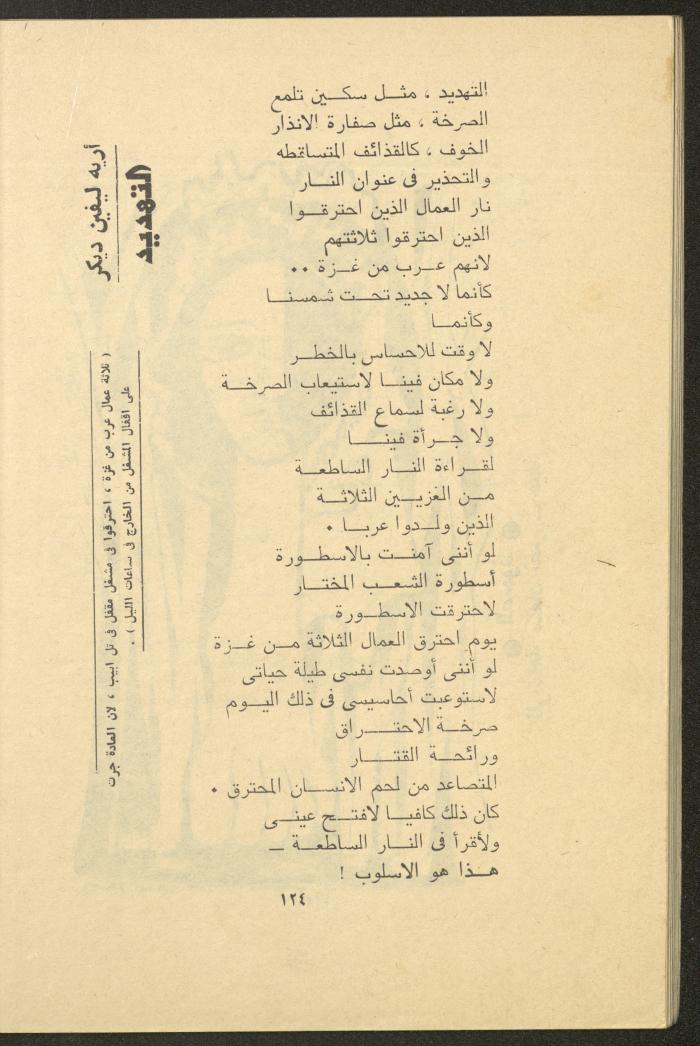 أريه ليفين ديكر
التهديد
( ثلاثة عمال عرب من غزة ، احترقوا فى مشغل مقفل فى تل ابيب ، لان العادة جرت
على اقفال المشغل من الخارج فى ساعات الليل ) .
التهديد ، مثل سكين تلمع
الصرخة ، مثل صفارة الانذار
الخوف ، كالقذائف المتساقطه
والتحذير فى عنوان النار
نار العمال الذين احترقوا
الذين احترقوا ثلاثتهم
لانهم عرب من غزة ..
كأنما لا جديد تحت شمسنا
وكأنما
لا وقت للاحساس بالخطر
ولا مكان فينا لاستيعاب الصرخة
ولا رغبة لسماع القذائف
ولا جرأة فينا
لقراءة النار الساطعة
من الغزيين الثلاثة
الذين ولدوا عربا .
لو أننى آمنت بالاسطورة
أسطورة الشعب المختار
لاحترقت الاسطورة
يوم احترق العمال الثلاثة من غزة
لو أننى أوصدت نفسى طيلة حياتى
لاستوعبت أحاسيسى فى ذلك اليوم
صرخة الاحتراق
ورائحة القتار
المتصاعد من لحم الانسان المحترق .
كان ذلك كافيا لافتح عينى
ولأقرأ فى النار الساطعة ـ
هذا هو الاسلوب !
١٢٤